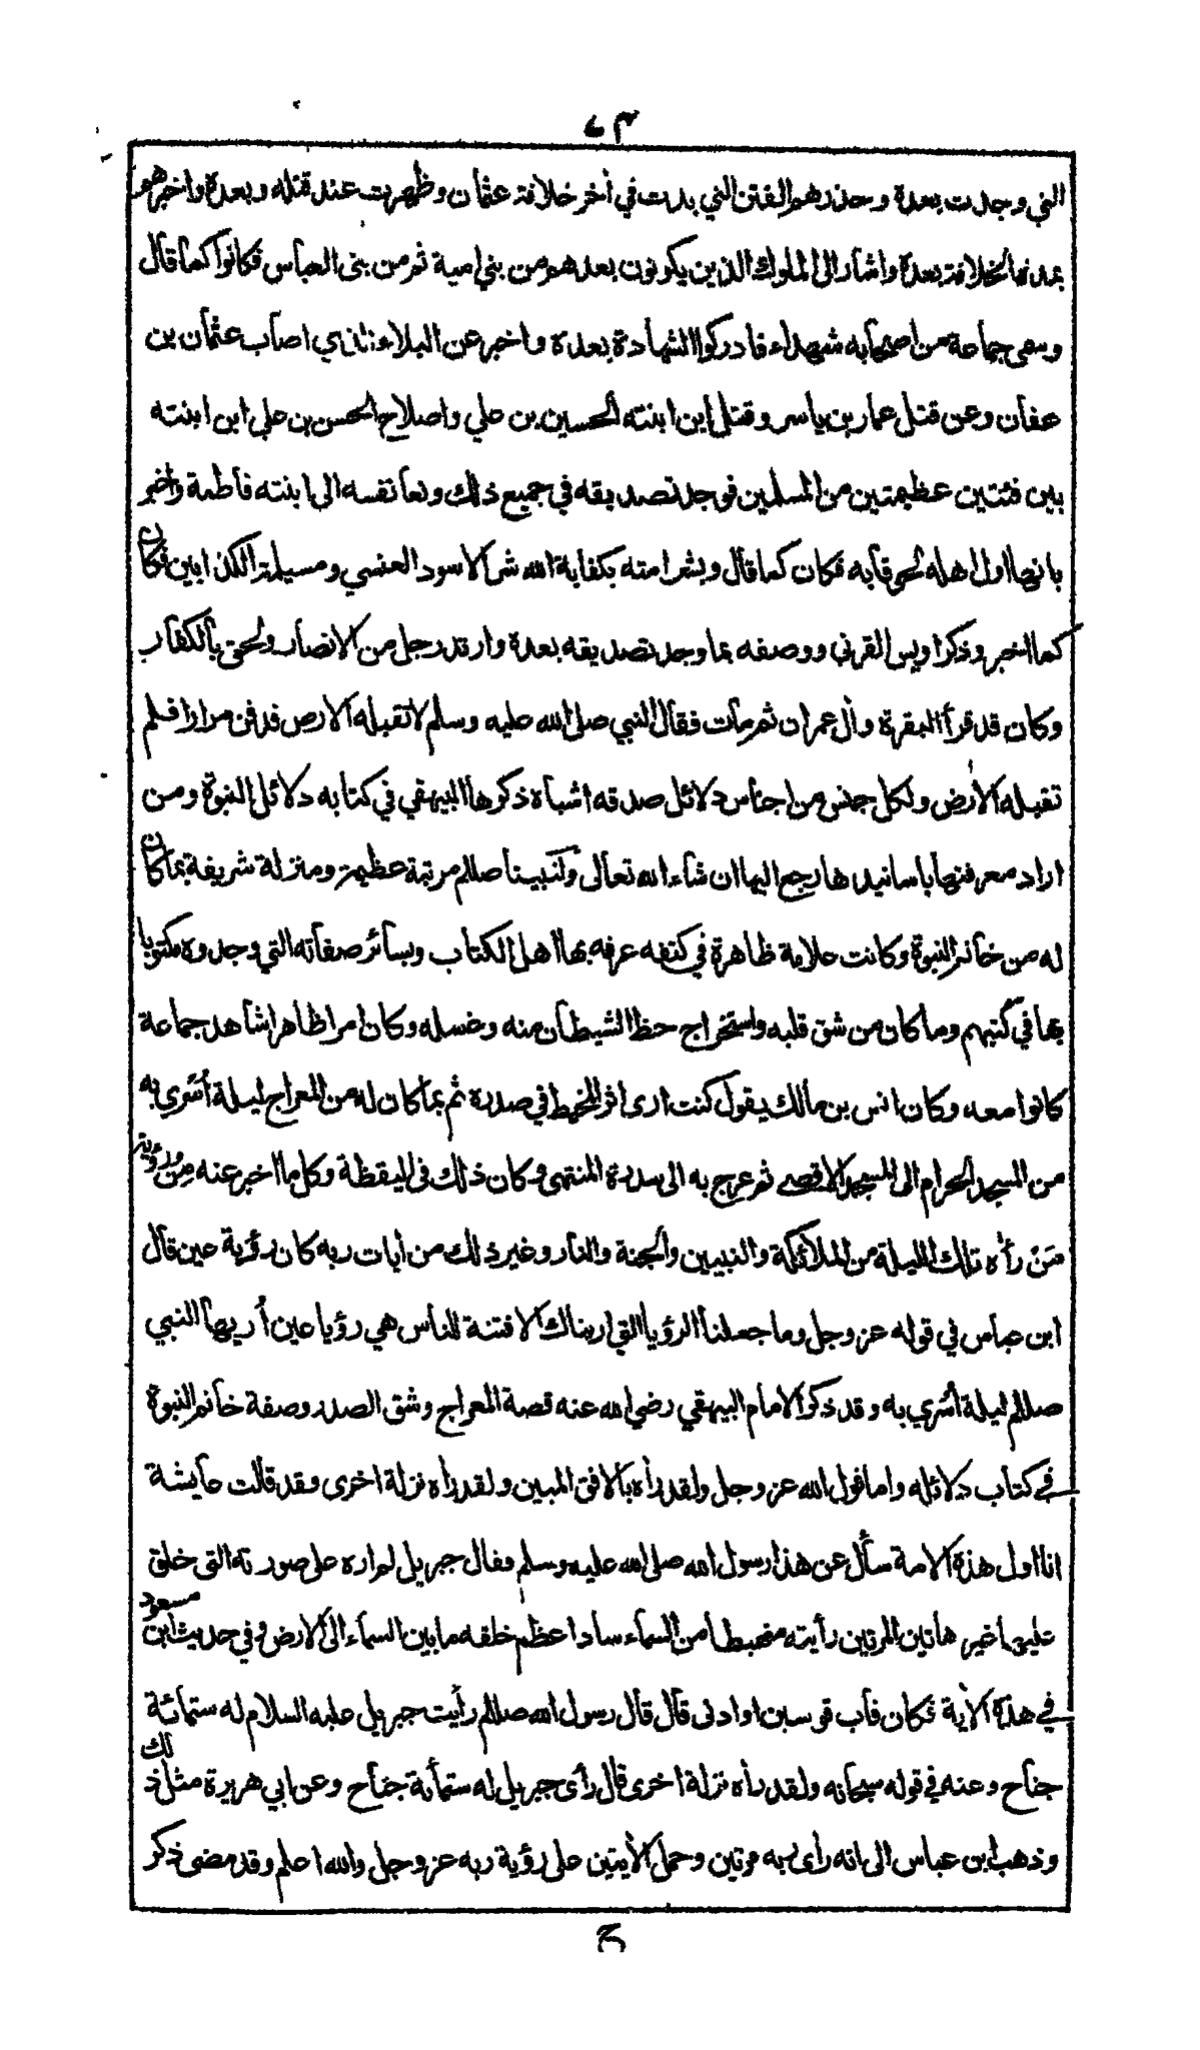 ٧٣
التي وجدت بعده وحذرهم الفتن التي بدت في أخر خلافة عثمان وظهرت عند قتله وبعده واخبرهم
بمدة الخلافة بعده واشار الى الملوك الذين يكونون بعدهم من بني امية ثم من بنى العباس فكانوا كما قال
وسمى جماعة من اصحابه شهداء فادركوا الشهادة بعده واخبر عن البلاء الذي اصاب عثمان بن
عفان وعن قتل عمار بن ياسر وقتل ابن ابنته الحسين بن علي واصلاح الحسن بن علي ابن ابنته
بين فئتين عظيمتين من المسلمين فوجد تصديقه في جميع ذلك ونعا نفسه الى ابنته فاطمة واخبر
بانها اول اهله لحوقا به فكان كما قال وبشر امته بكفاية الله شر الاسود العنسي ومسيلمة الكذابين فكان
كما اخبر وذكر اويس القرني ووصفه بما وجد تصديقه بعده وارتد رجل من الانصار ولحق بالكفار
وكان قد قرأ البقرة وأل عمران ثم مات فقال النبي صلى الله عليه وسلم لا تقبله الارض فدفن مرارا فلم
تقبله الارض ولكل جنس من اجناس دلائل صدقه اشباه ذكرها البيهقي في كتابه دلائل النبوة ومن
اراد معرفتها باسانيدها رجع اليها ان شاء الله تعالى ولنبينا صللم مرتبة عظيمة ومنزلة شريفة بما كان
له من خاتم النبوة وكانت علامة ظاهرة في كتفه عرفه بها اهل الكتاب وبسائر صفاته التي وجدوه مكتوبا
بها في كتبهم وما كان من شق قلبه واستخراج حظ الشيطان منه وغسله وكان امرا ظاهرا شاهد جماعة
كانوا معه وكان انس بن مالك يقول كنت ارى اثر المخيط في صدره ثم بما كان له من المعراج ليلة أسري به
من المسجد الحرام الى المسجد الاقصى ثم عرج به الى سدرة المنتهى وكان ذلك في اليقظة وكل ما اخبر عنه من رؤية
مَنْ رأه تلك الليلة من الملائكة والنبيين والجنة والنار وغير ذلك من أيات ربه كان رؤية عين قال
ابن عباس في قوله عز وجل وما جعلنا الرؤيا التي اريناك الا فتنة للناس هي رؤيا عين أُريها النبي
صللم ليلة أسري به وقد ذكر الامام البيهقي رضي الله عنه قصة المعراج وشق الصدر وصفة خاتم النبوة
في كتاب دلائله واما قول الله عز وجل ولقد رأه بالافق المبين ولقد راه نزلة اخرى وقد قالت عايشة
انا اول هذه الامة سأل عن هذا رسول الله صلى الله عليه وسلم وقال جبريل لم اره على صورته التى خلق
عليها غير هاتين المرتين رأيته منهبطا من السماء سادا عظم خلقه ما بين السماء الى الارض وفي حديث ابن مسعود
في هذه الأية فكان قاب قوسين او ادنى قال قال رسول الله صللم رأيت جبريل عليه السلام له ستمائة
جناح وعنه في قوله سبحانه ولقد رأه نزلة اخرى قال رأى جبريل له ستمأئة جناح وعن ابي هريرة مثل ذلك
وذهب ابن عباس الى انه راى ربه مرتين وحمل الأيتين على رؤية ربه عز وجل والله اعلم وقد مضى ذكر
ح